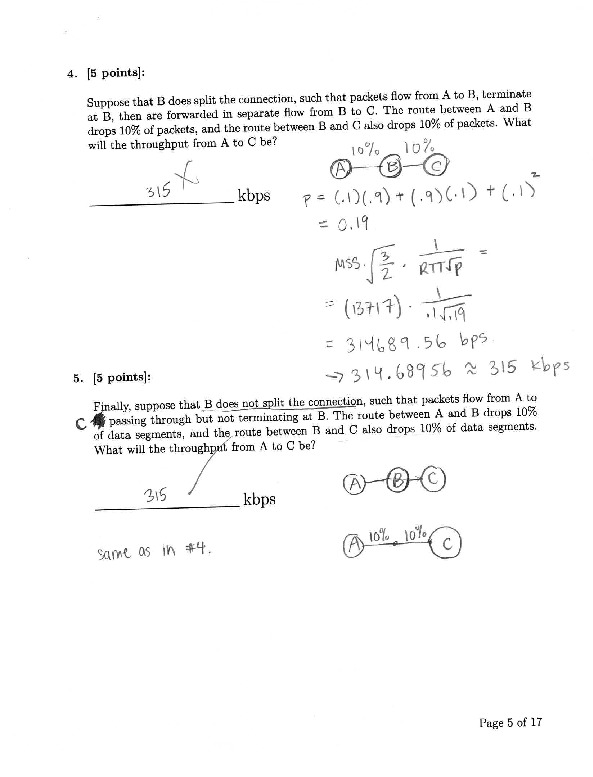 4. [5 points]:
Suppose that B does split the connection, such that packets flow from A to B, terminate
at B, then are forwarded in separate flow from B to C. The route between A and B
drops 10% of packets, and the route between B and C also drops 10% of packets. What
will the throughput from A to C be?
10% 10%
A B C
315 kbps
P = (.1)(.9) + (.9)(.1) + (.1)²
= 0.19
MSS · √3/2 · 1/RTT√P =
= (13717) · 1/.1√.19
= 314689.56 bps.
→ 314.68956 ≈ 315 kbps
5. [5 points]:
Finally, suppose that B does not split the connection, such that packets flow from A to
C passing through but not terminating at B. The route between A and B drops 10%
of data segments, and the route between B and C also drops 10% of data segments.
What will the throughput from A to C be?
A B C
315 kbps
A 10% 10% C
same as in #4.
Page 5 of 17